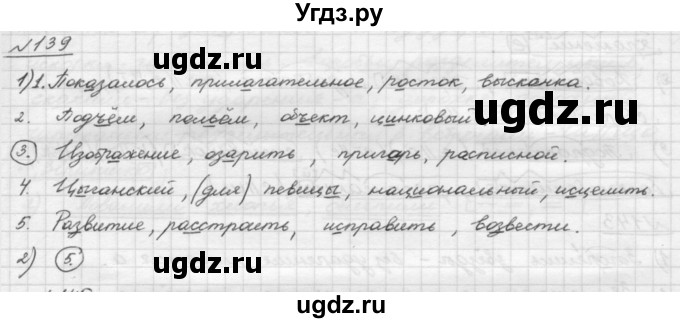 Угдз.ру
№139
1) 1. Показалось, прилагательное, росток, выскочка.
gdz.ru
2. Подъём, польём, объект, цинковый
3. Изображение, озарить, пригарь, расписной.
4. Цыганский, (для) певицы, национальный, исцелить.
5. Развитие, расстроить, исправить, возвести.
2) 5.
uqdz.ru
uqdz.ru
uqdz.ru
uqdz.ru